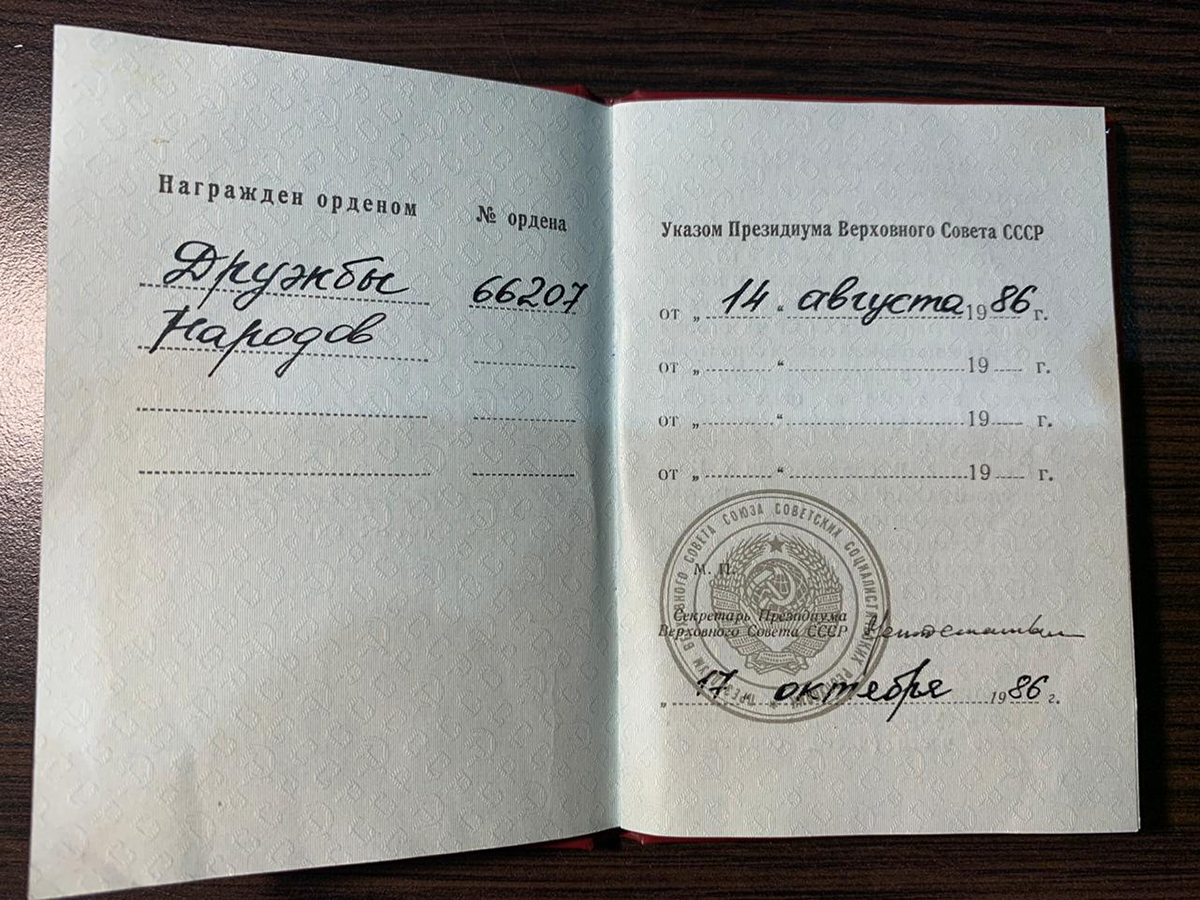 Награжден орденом
№ ордена
Дружбы 66207
Народов
Указом Президиума Верховного Совета СССР
от „ 14 “ августа 1986 г.
от „ “ 19 г.
от „ “ 19 г.
от „ “ 19 г.
ПРЕЗИДИУМ ВЕРХОВНОГО СОВЕТА СОЮЗА СОВЕТСКИХ СОЦИАЛИСТИЧЕСКИХ РЕСПУБЛИК
М. П.
Секретарь Президиума
Верховного Совета СССР
„ 17 октября 1986 г.